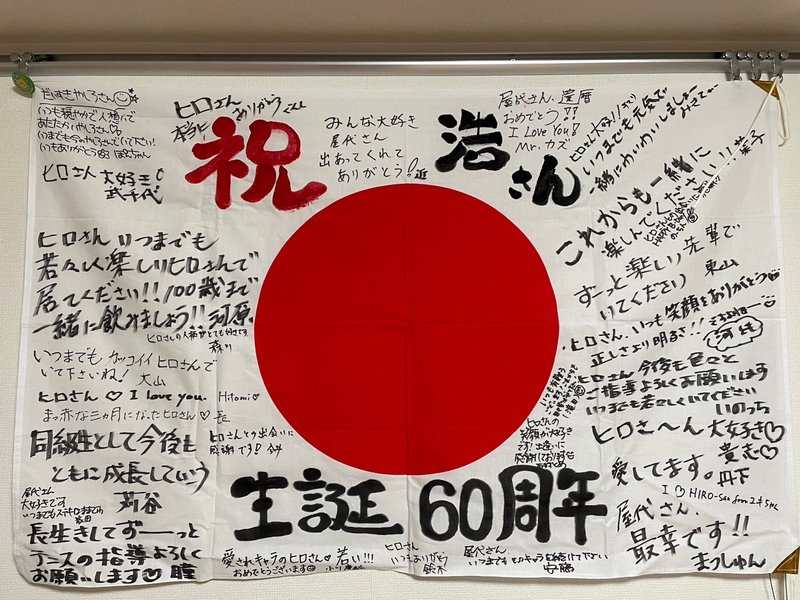 祝
浩さん
生誕 60周年
いつも穏やかで人想いで
ヒロさん
ありがとう
ヒロさん 大好き
武千代
みんな大好き
屋代さん
出あってくれて
ありがとう!
屋代さん、還暦
おめでとう!!
I Love You!
Mr. カズ
ヒロさん大好き
いつまでも元気で
一緒にわいわいしましょー
これからも一緒に
楽しんでください!! 葉子
ずーっと楽しい先輩で
いてください) 東山
・ヒロさん、いつも笑顔をありがとう
正しさより明るさ!!
ヒロさん今後も色々と
ご指導よろしくお願いします
いつまでも若々しくいてください
いのっち
ヒロさ〜ん 大好き♡
貴志♡
愛してます。丹下
I ♡ HIRO-san from ユキちゃん
屋代さん、
最幸です!!
まっしゅん
ヒロさん いつまでも
若々しく楽しいヒロさんで
居てください!! 100歳まで
一緒に飲みましょう!! 河原
森川
いつまでも カッコイイ ヒロさんで
いて下さいね! 大山
ヒロさん ♡ I love you. Hitomi♡
まっ赤な三ヵ月になったヒロさん♡ 長
同級生として今後も
ともに成長していう
苅谷
ヒロさんとの出会いに
感謝です!
ヒロさんの
笑顔が大好き
です!出逢いに
屋代さん
大好きです
長生きしてずーーっと
テニスの指導よろしく
お願いします♡ 瞳
愛されキャラのヒロさん♡ 若い!!!
おめでとうございます
ヒロさん
いつもありがとう
鈴木
屋代さん
いつまでもそのキャラを続けて下さい
安藤